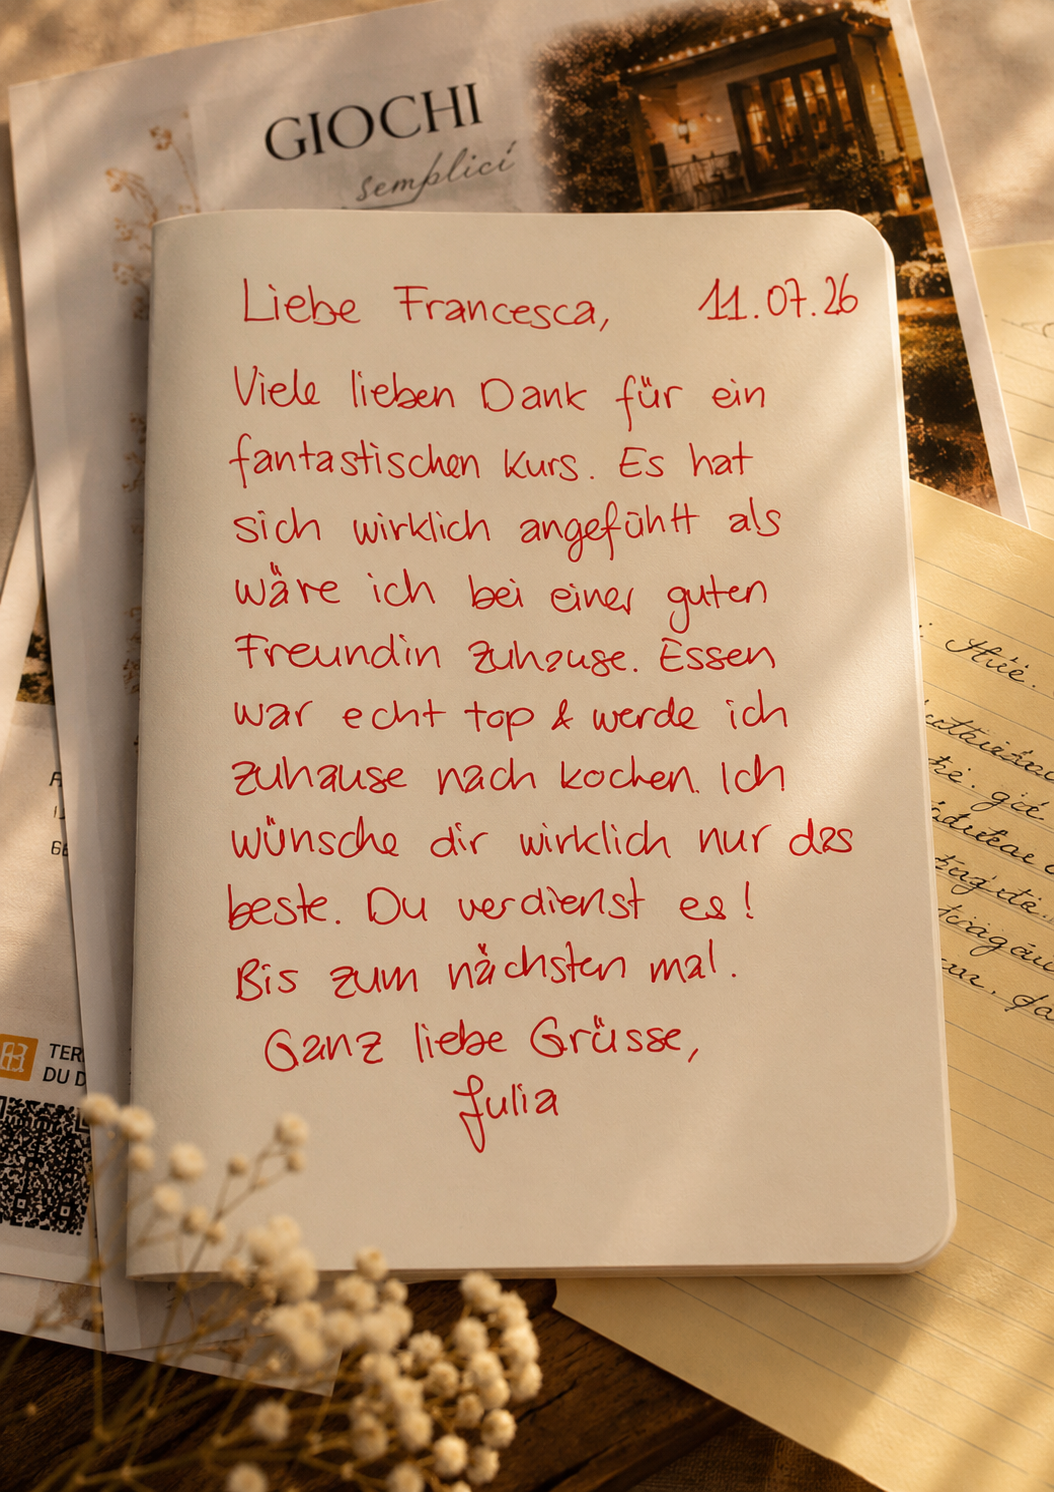 GIOCHI
semplici
Liebe Francesca, 11.07.26
Viele lieben Dank für ein
fantastischen Kurs. Es hat
sich wirklich angefühlt als
wäre ich bei einer guten
Freundin zuhause. Essen
war echt top & werde ich
zuhause nach kochen. Ich
wünsche dir wirklich nur das
beste. Du verdienst es!
Bis zum nächsten mal.
Ganz liebe Grüsse,
Julia
TER
DU D